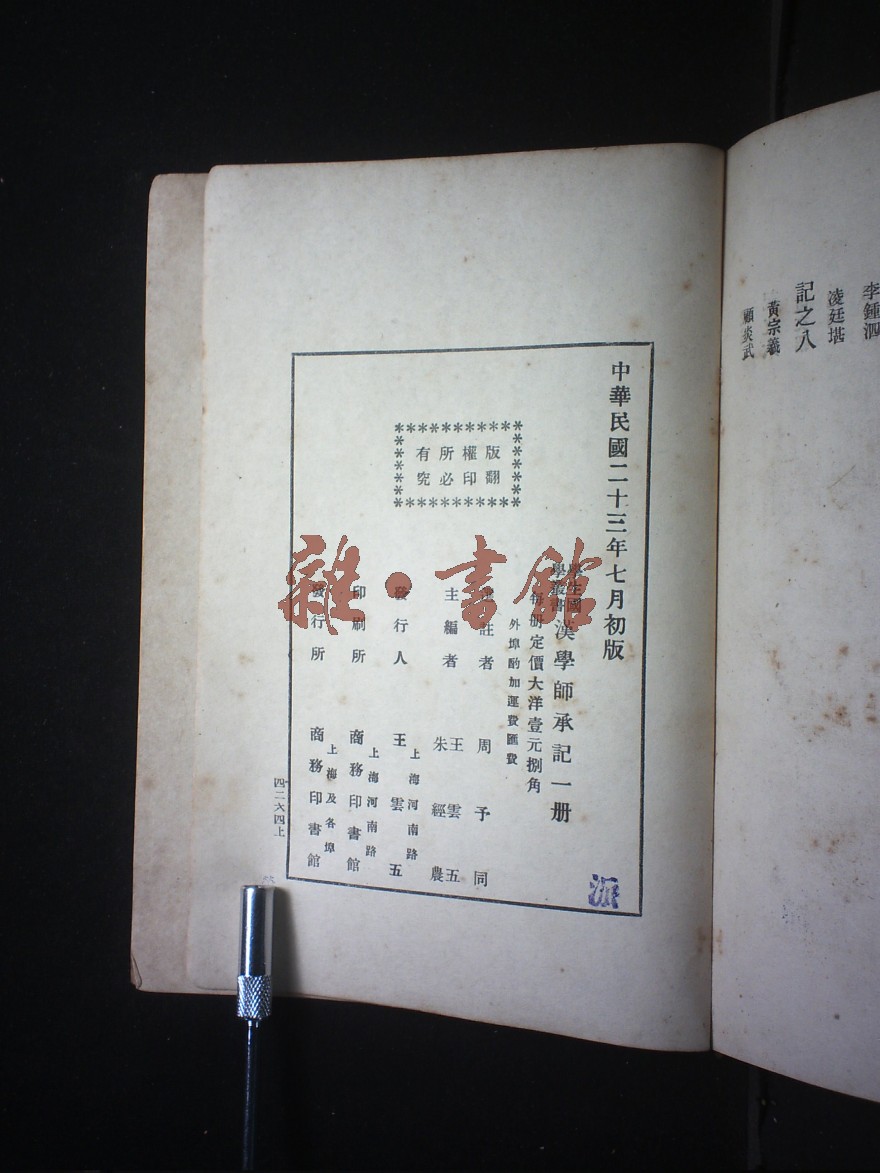 李鍾泗
凌廷堪
記之八
黃宗羲
顧炎武
中華民國二十三年七月初版
學生國學叢書 漢學師承記一册
每册定價大洋壹元捌角
外埠酌加運費匯費
版權所有
翻印必究
註者 周予同
主編者 王雲五
朱經農
發行人 王雲五
上海河南路
印刷所 商務印書館
上海河南路
發行所 商務印書館
上海及各埠
四二六四上
雜·書館